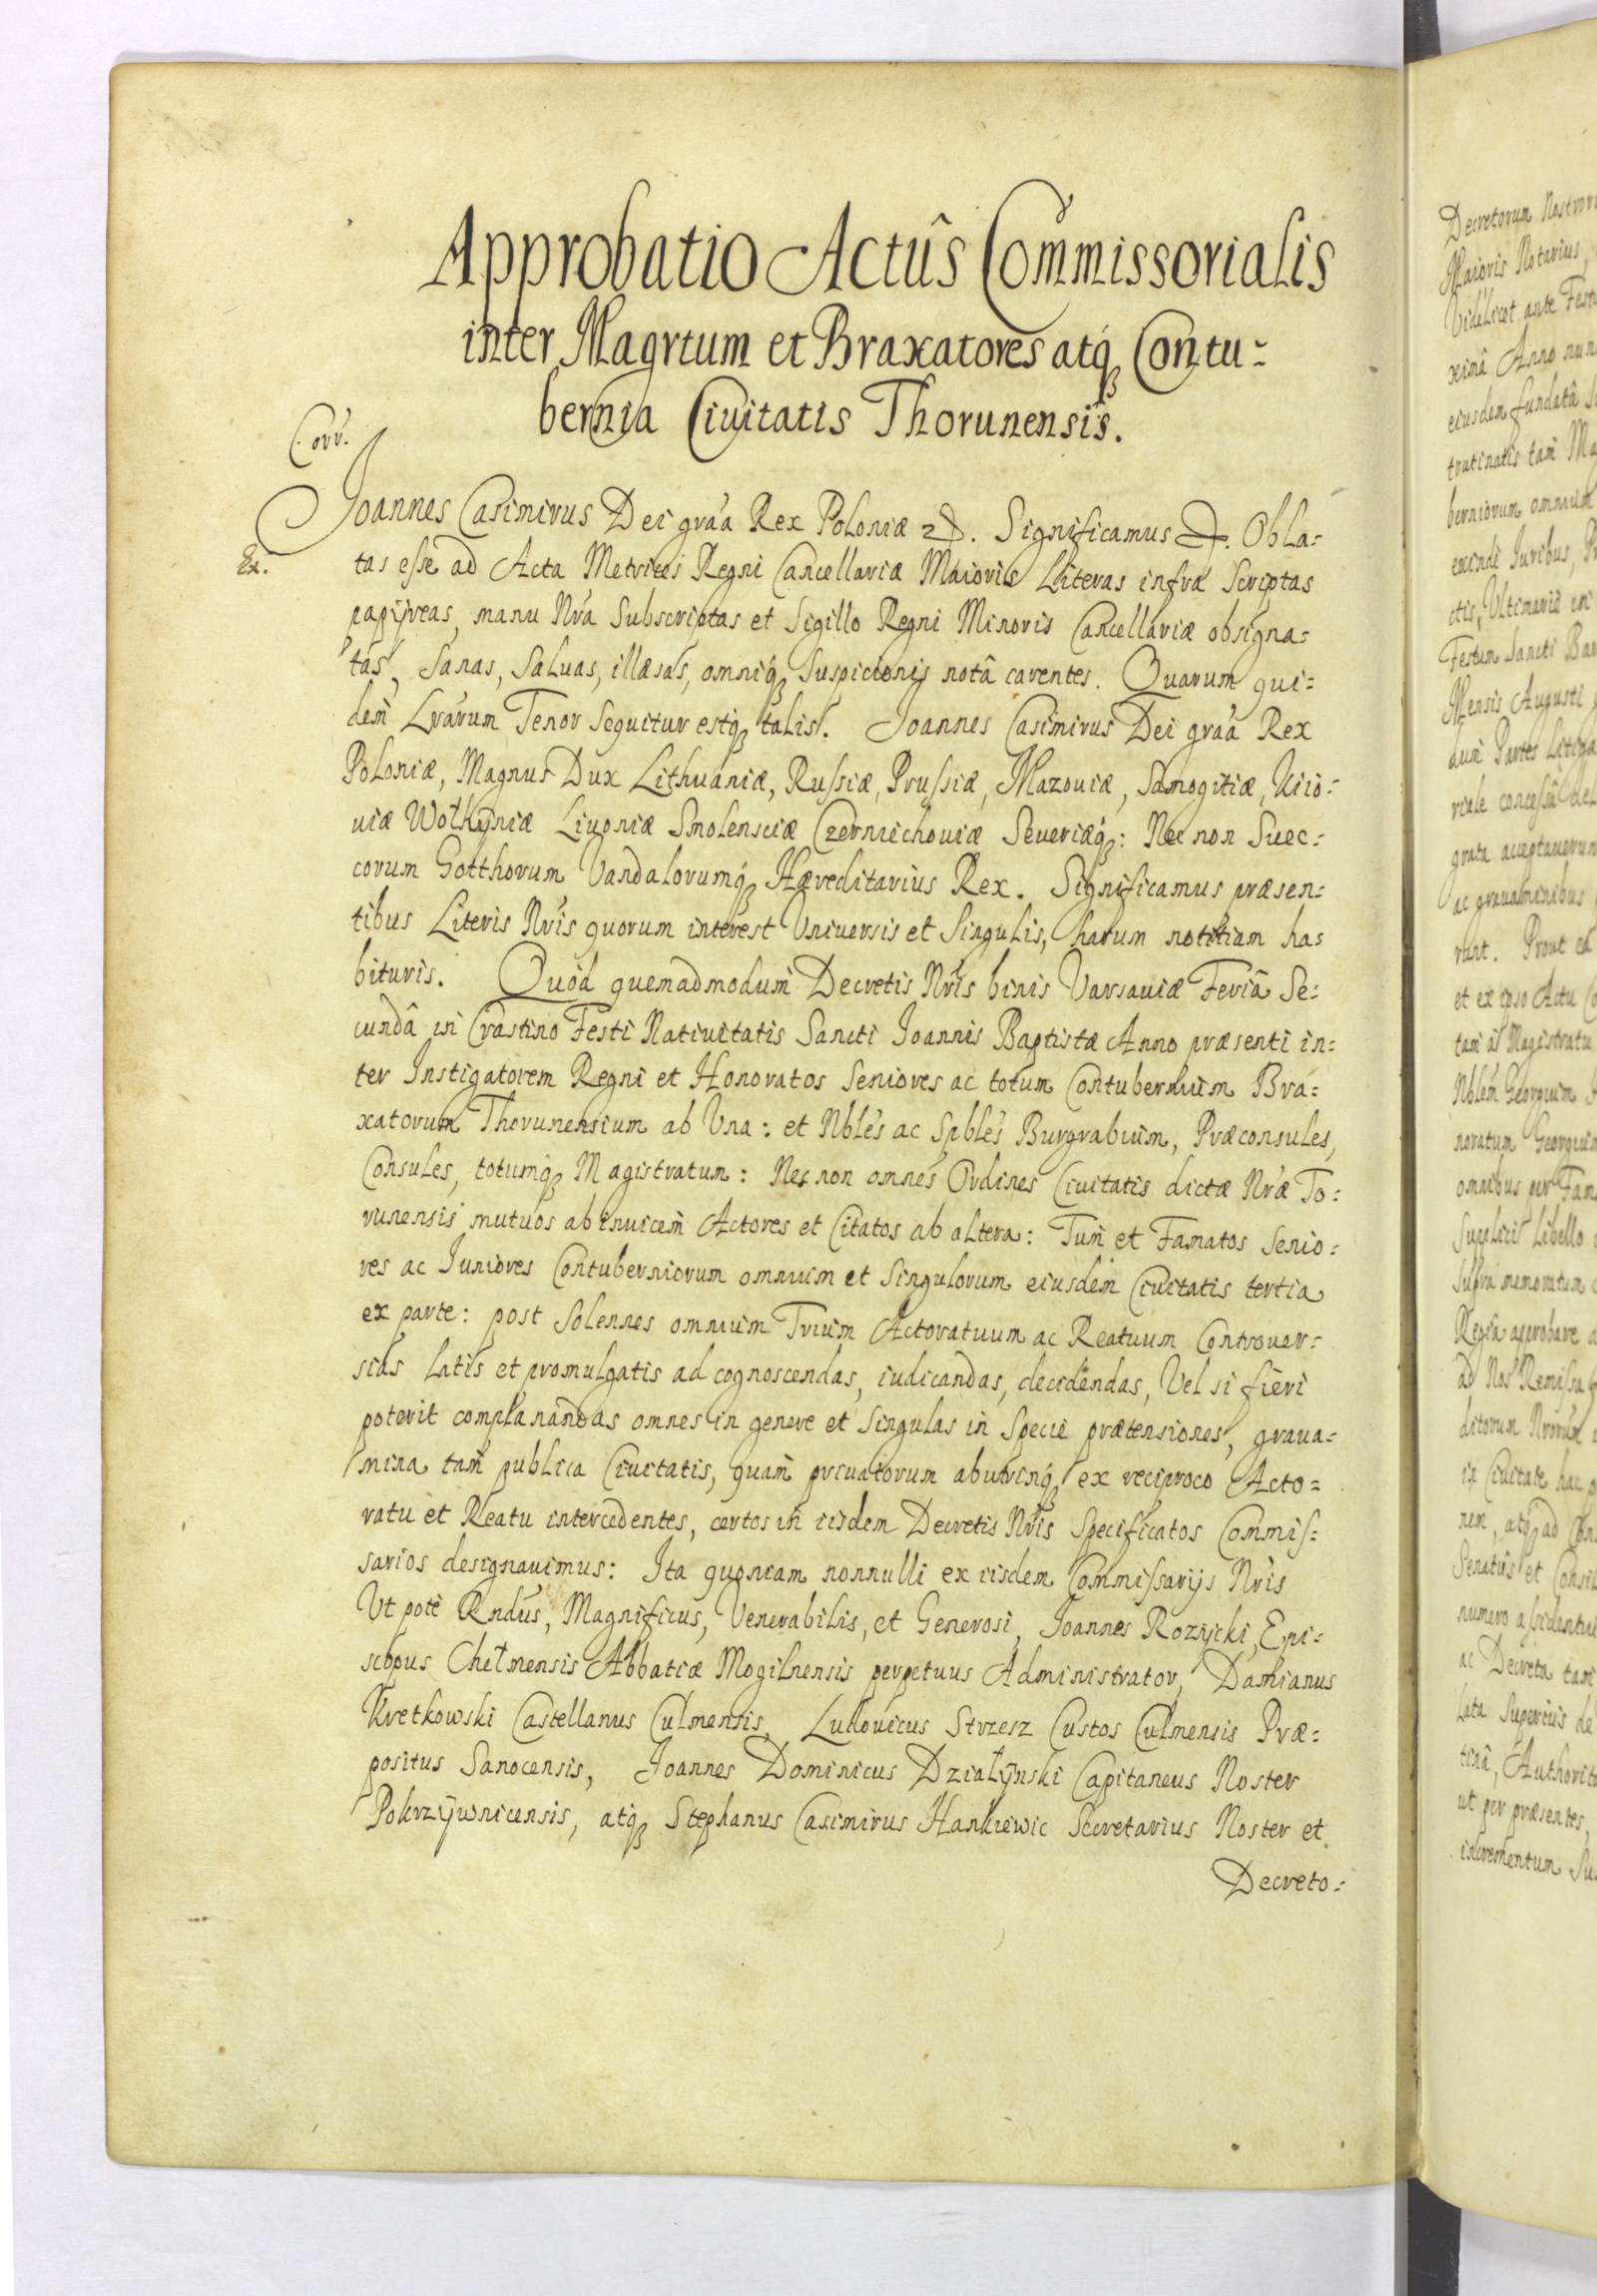 Approbatio Actûs Com̃missorialis
inter Magrtum et Braxatores atq́ Contu=
bernia Ciuitatis Thorunensis.
Corr.
Joannes Casimirus Dei grãa Rex Poloniæ &. Significamus &. Obla=
Ex.
tas esse ad Acta Metrices Regni Cancellariæ Maioris Lliteras infra Scriptas
papijreas, manu Nrã Subscriptas et Sigillo Regni Minoris Cancellariæ obsigna=
tas, Sanas, Saluas, illæsas, omniq́ Suspicionis notâ carentes. Quarum qui=
dem̃ Lrãrum Tenor Sequitur estq́ talis. Joannes Casimirus Dei grãa Rex
Poloniæ, Magnus Dux Lithuaniæ, Russiæ, Prussiæ, Mazouiæ, Samogitiæ, Kiio=
uiæ Wolhÿniæ Liuoniæ Smolensciæ Czerniechouiæ Seueriæq́: Nec non Suec=
corum Gotthorum Vandalorumq́ Hæreditarius Rex. Significamus præsen=
tibus Literis Nrĩs quorum interest Vniuersis et Singulis, harum notitiam ha=
bituris. Quòd quemadmodum̃ Decretis Nrĩs binis Varsauiæ Feriâ Se=
cundâ in Crastino Festi Natiuitatis Sancti Joannis Baptistæ Anno præsenti in=
ter Instigatorem Regni et Honoratos Seniores ac totum Contubernium Bra=
xatorum Thorunensium ab Vna: et Nblẽs ac Spblẽs Burgrabium, Præconsules,
Consules, totumq́ Magistratum: Nec non omnes Ordines Ciuitatis dictæ Nrǽ To=
runensis mutuos abinuicem̃ Actores et Citatos ab altera: Tum̃ et Famatos Senio=
res ac Juniores Contuberniorum omnium et Singulorum eiusdem̃ Ciuitatis tertia
ex parte: post Solennes omnium Trium Actoratuum ac Reatuum Controuer=
sias latis et promulgatis ad cognoscendas, iudicandas, decidendas, Vel si fieri
poterit complanandas omnes in genere et Singulas in Specie prætensiones, graua=
mina tam̃ publica Ciuitatis, quam̃ priuatorum abutrinq́ ex reciproco Acto=
ratu et Reatu intercedentes, certos in iisdem Decretis Nrĩs Specificatos Commis=
sarios designauimus: Ita quoniam nonnulli ex iisdem Commissarijs Nrĩs
Vt potè Rndũs, Magnificus, Venerabilis, et Generosi, Joannes Rozÿcki, Epi=
scopus Chełmensis Abbatiæ Mogilnensis perpetuus Administrator, Damianus
Kretkowski Castellanus Culmensis, Ludouicus Strzesz Custos Culmensis Præ=
positus Sanocensis, Joannes Dominicus Działÿnski Capitaneus Noster
Pokrzÿwnicensis, atq́ Stephanus Casimirus Hankiewic Secretarius Noster et
Decreto=
Decretorum Nostroru
Maioris Notarius,
Videlicet ante Fest
ximâ Anno nun
eiusdem fundatâ
trutinatis tam̃ Ma
berniorum omnium
exinde Juribus,
ctis, Vltimariè in
Festum Sancti Ba
Mensis Augusti
dum̃ Partes Litiga
riale concessu
grata acceptauerun
ac grauaminibus
runt. Prout ea
et ex ipso Actu
tam̃ à Magistratu
Nblem̃ Georgium
noratum Georgium
omnibus per Fam
Supplici Libello
Supra memoratum
Regia approbare
ad Nos Remissa
ditorum Nrõrum
in Ciuitate hac
rum, atq́ ad
Senatûs et Consil
numero assident
ac Decreta tam
lata Superius de
tinâ, Authorit
ut per præsentes,
incrementum